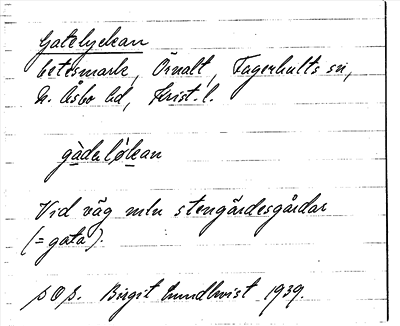 Gatelyckan
betesmark, Örnalt, Fagerhults sn,
N. Åsbo hd, Krist. l.
gàdəløkan
Vid väg mln stengärdesgårdar
(= gata).
S O S. Birgit Lundkvist 1939.